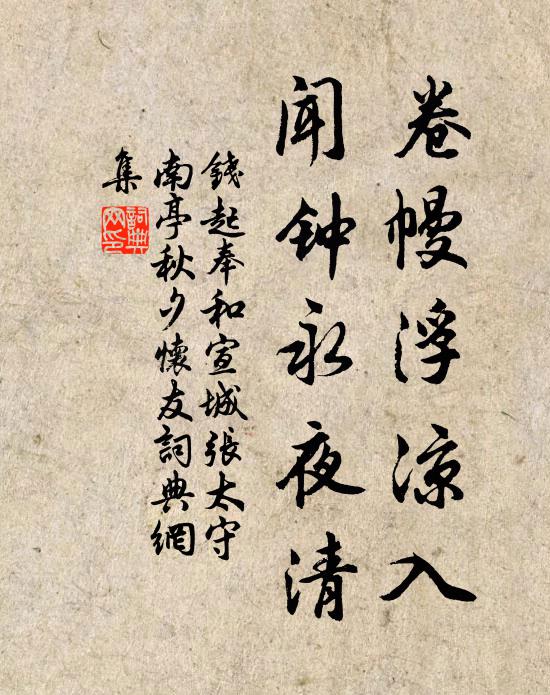 卷幔浮凉入
闻钟永夜清
錢起奉和宣城張太守
南亭秋夕懷友詞典網
集
詞典
网印